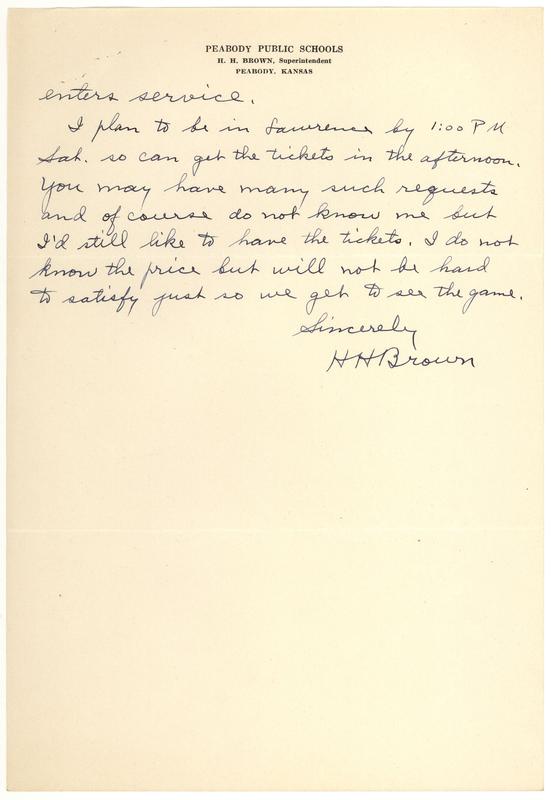 PEABODY PUBLIC SCHOOLS
H. H. BROWN, Superintendent
PEABODY, KANSAS
enters service.
I plan to be in Lawrence by 1:00 PM
Sat. so can get the tickets in the afternoon.
You may have many such requests
and of course do not know me but
I'd still like to have the tickets. I do not
know the price but will not be hard
to satisfy just so we get to see the game.
Sincerely
HHBrown